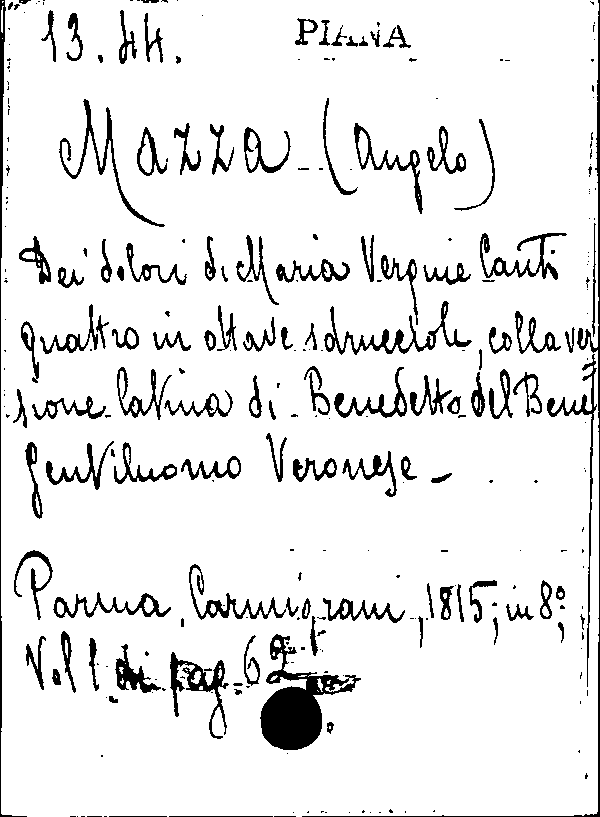 13. 44. PIANA
Mazza (Angelo)
Dei dolori di Maria Vergine Canti
quattro in ottave sdrucciole, colla ver
sione latina di Benedetto del Bene
Gentiluomo Veronese –
Parma, Carmignani, 1815; in 8º;
Vol 1. di pag. 62